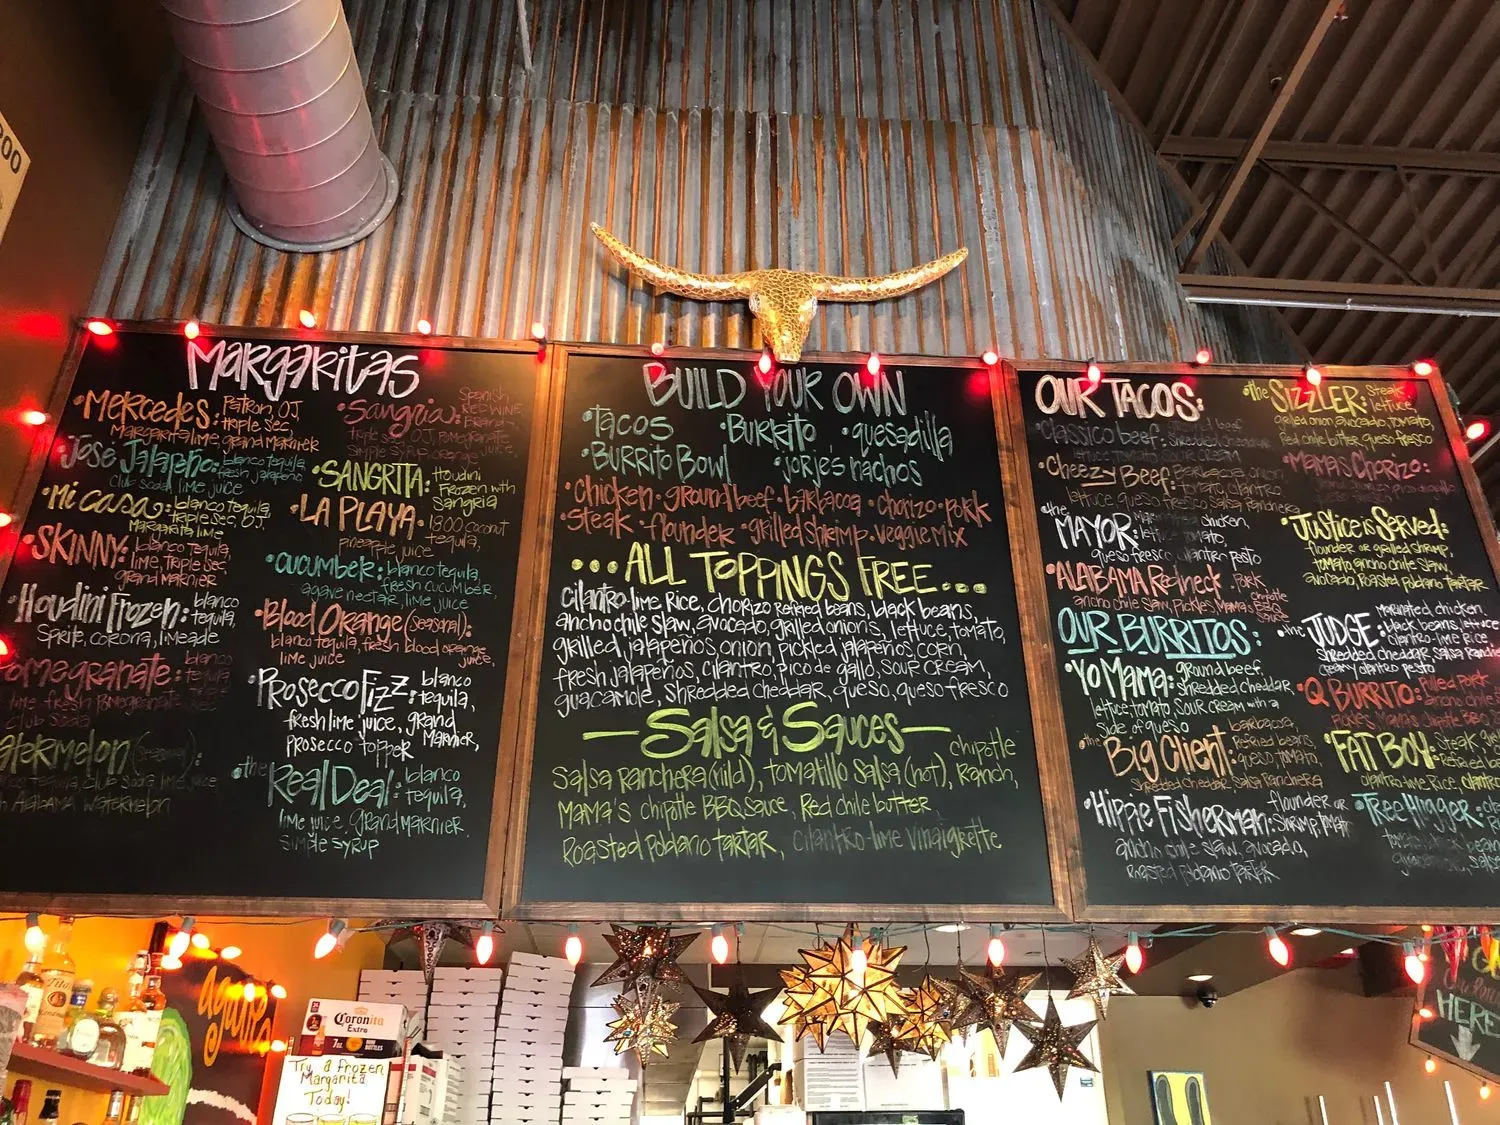 MARGARITAS
•MERCEDES: Patron, OJ,
triple sec,
Margarita lime, grand Marnier
•Jose Jalapeño: blanco tequila,
fresh jalapeño
club soda, lime juice
•Mi casa: blanco tequila,
triple sec, OJ,
Margarita lime
•SKINNY: blanco tequila,
lime, triple sec,
grand Marnier
•Houdini Frozen: blanco
tequila,
Sprite, corona, limeade
Pomegranate: blanco
tequila,
lime, fresh pomegranate
club soda
Watermelon (seasonal):
tequila, club soda, lime juice
Alabama Watermelon
•Sangria: Spanish
RED WINE,
Brandy,
triple sec, OJ, pomegranate,
simple syrup, orange
•SANGRITA: Houdini
Frozen with
Sangria
•LA PLAYA: 1800 coconut
tequila,
pineapple juice
•cucumber: blanco tequila,
fresh cucumber,
agave nectar, lime juice
•Blood Orange (seasonal):
blanco tequila, fresh blood orange
juice,
lime juice
•Prosecco Fizz: blanco
tequila,
fresh lime juice, grand
Marnier,
prosecco topper
•the Real Deal: blanco
tequila,
lime juice, grand marnier,
simple syrup
BUILD YOUR OWN
•Tacos •Burrito •quesadilla
•Burrito Bowl •jorje's nachos
•chicken •ground beef •barbacoa •chorizo •pork
•steak •flounder •grilled shrimp •veggie mix
...ALL TOPPINGS FREE...
cilantro-lime Rice, chorizo Refried beans, black beans,
ancho chile slaw, avocado, grilled onions, lettuce, tomato,
grilled jalapeños, onion, pickled jalapeños, corn,
fresh jalapeños, cilantro, pico de gallo, sour cream,
guacamole, shredded cheddar, queso, queso fresco
—Salsa & Sauces—
chipotle
Salsa Ranchera (mild), tomatillo salsa (hot), Ranch,
MAMA'S chipotle BBQ sauce, Red chile butter
Roasted poblano tartar, cilantro-lime vinaigrette
OUR TACOS:
classico beef: shredded beef
lettuce, tomato, sour cream
•Cheezy Beef: Barbacoa, onion,
tomato, cilantro
lettuce, queso fresco, salsa Ranchera
•the MAYOR: Marinated chicken,
lettuce, tomato,
queso fresco, cilantro pesto
•ALABAMA Redneck: pork,
ancho chile slaw, pickles, Mama's chipotle
BBQ
sauce
•the SIZZLER: Steak,
lettuce,
grilled onion, avocado, tomato,
Red chile butter, queso fresco
•Mama's Chorizo:
•Justice is Served:
flounder or grilled shrimp,
tomato, ancho chile slaw,
avocado, Roasted poblano tartar
OUR BURRITOS:
•Yo Mama: ground beef,
shredded cheddar,
lettuce, tomato, sour cream with a
side of queso
•the Big Client: barbacoa,
Refried beans,
queso, tomato,
shredded cheddar, salsa Ranchera
•Hippie Fisherman: flounder or
shrimp,
ancho chile slaw, avocado,
roasted poblano tartar
•the JUDGE: marinated chicken,
black beans, lettuce
cilantro-lime Rice
shredded cheddar, salsa
creamy cilantro pesto
•Q BURRITO: Pulled pork
ancho chile
pickles, Mama's chipotle BBQ
•FAT BOY: Steak,
Refried
cilantro-lime Rice,
•Tree Hugger:
agave
Coronita
Extra
7oz.
Try a frozen
Margarita
Today!
HERE